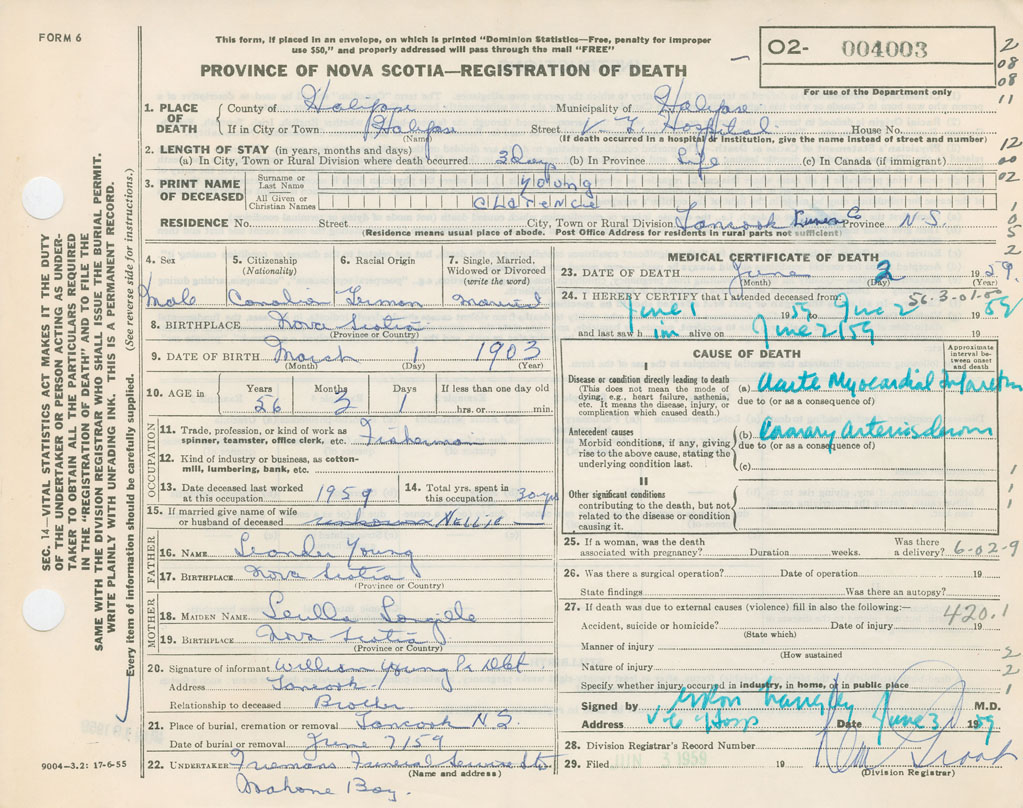 FORM 6
This form, if placed in an envelope, on which is printed "Dominion Statistics—Free, penalty for improper
use $50," and properly addressed will pass through the mail "FREE"
PROVINCE OF NOVA SCOTIA—REGISTRATION OF DEATH
O2- 004003
For use of the Department only
2
08
08
11
12
00
02
1
0
5
2
SEC. 14—VITAL STATISTICS ACT MAKES IT THE DUTY
OF THE UNDERTAKER OR PERSON ACTING AS UNDER-
TAKER TO OBTAIN ALL THE PARTICULARS REQUIRED
IN THE "REGISTRATION OF DEATH" AND FILE THE
SAME WITH THE DIVISION REGISTRAR WHO SHALL ISSUE THE BURIAL PERMIT.
WRITE PLAINLY WITH UNFADING INK. THIS IS A PERMANENT RECORD.
Every item of information should be carefully supplied. (See reverse side for instructions.)
1. PLACE OF DEATH County of Halifax Municipality of Halifax
If in City or Town Halifax Street V. G. Hospital House No.
(Name) (If death occurred in a hospital or institution, give the name instead of street and number)
2. LENGTH OF STAY (in years, months and days)
(a) In City, Town or Rural Division where death occurred 3 Days (b) In Province Life (c) In Canada (if immigrant)
3. PRINT NAME OF DECEASED Surname or Last Name YOUNG
All Given or Christian Names CLARENCE
RESIDENCE No. Street City, Town or Rural Division Tancook Lunen Co Province N.S.
(Residence means usual place of abode. Post Office Address for residents in rural parts not sufficient)
4. Sex 5. Citizenship (Nationality) 6. Racial Origin 7. Single, Married, Widowed or Divorced (write the word)
Male Canadian German Married
8. BIRTHPLACE Nova Scotia
(Province or Country)
9. DATE OF BIRTH March 1 1903
(Month) (Day) (Year)
10. AGE in Years Months Days If less than one day old
56 3 1 hrs. or min.
OCCUPATION
11. Trade, profession, or kind of work as spinner, teamster, office clerk, etc. Fisherman
12. Kind of industry or business, as cotton-mill, lumbering, bank, etc.
13. Date deceased last worked at this occupation 1959 14. Total yrs. spent in this occupation 30 yrs
15. If married give name of wife or husband of deceased NELLIE
FATHER
16. NAME Leander Young
17. BIRTHPLACE Nova Scotia
(Province or Country)
MOTHER
18. MAIDEN NAME Langille
19. BIRTHPLACE Nova Scotia
(Province or Country)
20. Signature of informant William Young
Address Tancook
Relationship to deceased Brother
21. Place of burial, cremation or removal Tancook N S
Date of burial or removal June 7/59
22. UNDERTAKER Funeral Service
(Name and address)
Mahone Bay.
9004-3.2: 17-6-55
MEDICAL CERTIFICATE OF DEATH
23. DATE OF DEATH June 2 1959.
(Month) (Day) (Year)
56-3-01-
24. I HEREBY CERTIFY that I attended deceased from
June 1 1959 to June 2 1959
and last saw him alive on June 2/59 19
CAUSE OF DEATH
Approximate interval between onset and death
I
Disease or condition directly leading to death (a) Acute Myocardial Infarction
(This does not mean the mode of dying, e.g., heart failure, asthenia, etc. It means the disease, injury, or complication which caused death.) due to (or as a consequence of)
Antecedent causes (b) Coronary
Morbid conditions, if any, giving rise to the above cause, stating the underlying condition last. due to (or as a consequence of)
(c)
II
Other significant conditions
contributing to the death, but not related to the disease or condition causing it.
1
1
1
25. If a woman, was the death associated with pregnancy? Duration weeks. Was there a delivery? 6-02-9
26. Was there a surgical operation? Date of operation 19
State findings Was there an autopsy?
27. If death was due to external causes (violence) fill in also the following:— 420.1
Accident, suicide or homicide? Date of injury 19
(State which)
Manner of injury 2
(How sustained)
Nature of injury 2
Specify whether injury occurred in industry, in home, or in public place 1
Signed by M.D.
Address V G Hosp Date June 3 1959
28. Division Registrar's Record Number
29. Filed JUN 3 1959 19
(Division Registrar)